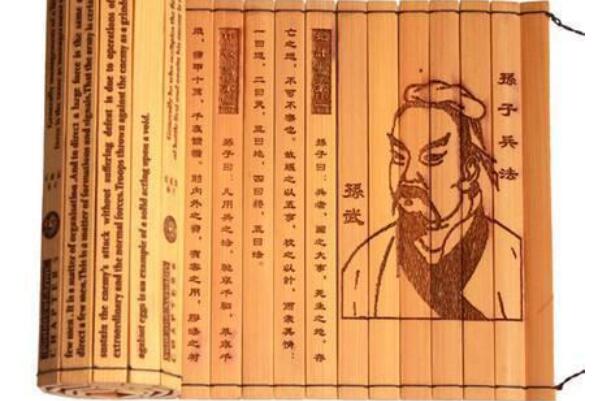 孫子兵法
孫武
孫子曰：兵者，國之大事，死生之地，存
亡之道，不可不察也。故經之以五事，校之以計，而索其情：
一曰道，二曰天，三曰地，四曰將，五曰法。
孫子曰：凡用兵之法，馳車千駟，革車千
乘，帶甲十萬，千里饋糧，則內外之費，賓客之用，膠漆之材
CHAPTER
few men. It is a matter of organisation. And to direct a large force is the same a
direct a few men. This is a matter of formations and signals. That the army is certai
sustain the enemy's attack without suffering defeat is due to operations of
extraordinary and the normal forces. Troops thrown against the enemy as a grind
against eggs is an example of a solid acting upon a void.